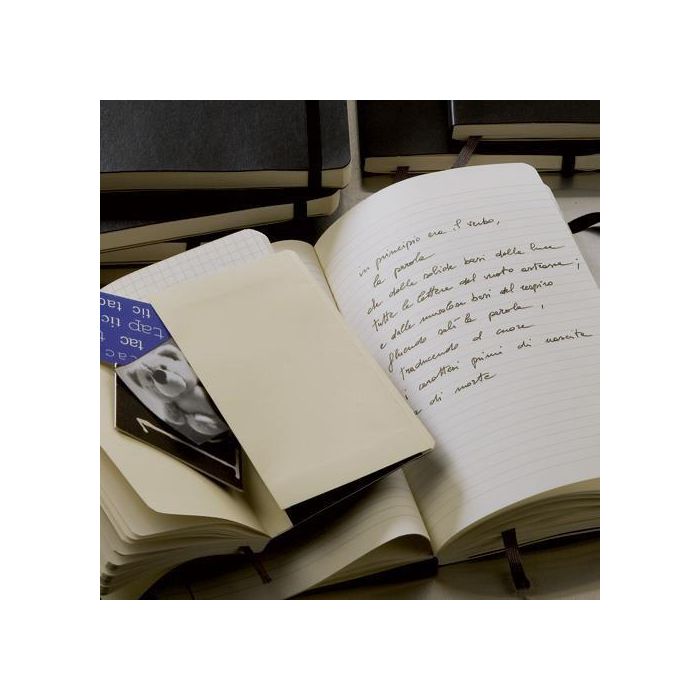 in principio era il verbo,
la parola
che dalle solide basi della luce
tutte le lettere del vuoto astrasse;
e dalle nuvolose basi del respiro
fluendo salì la parola,
traducendo al cuore
i caratteri primi di nascita
e di morte
tic tac
tap tic
tac
tac
1